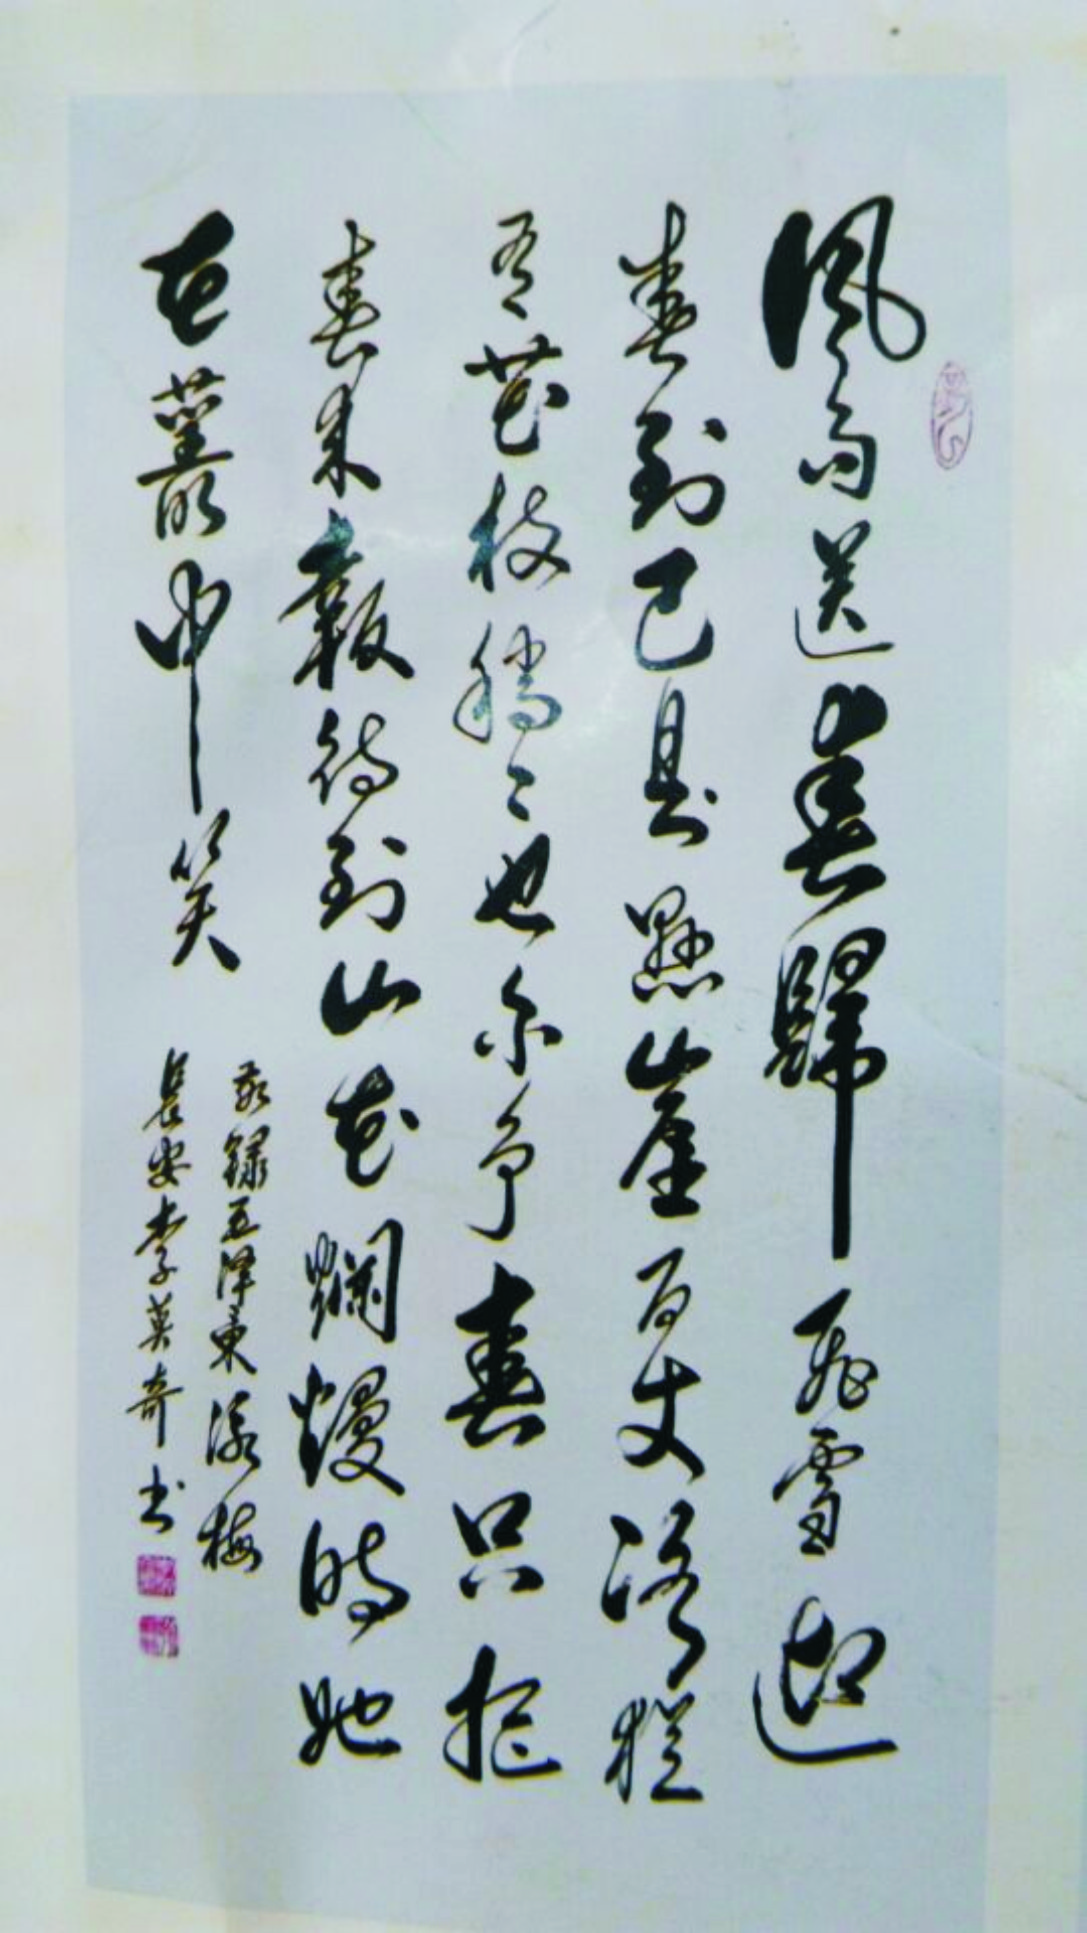 風雨送春歸飛雪迎
春到已是懸崖百丈冰猶
有花枝俏〻也不争春只把
春来報待到山花爛熳時她
在叢中笑
敬録毛泽東詠梅
長安李英奇书